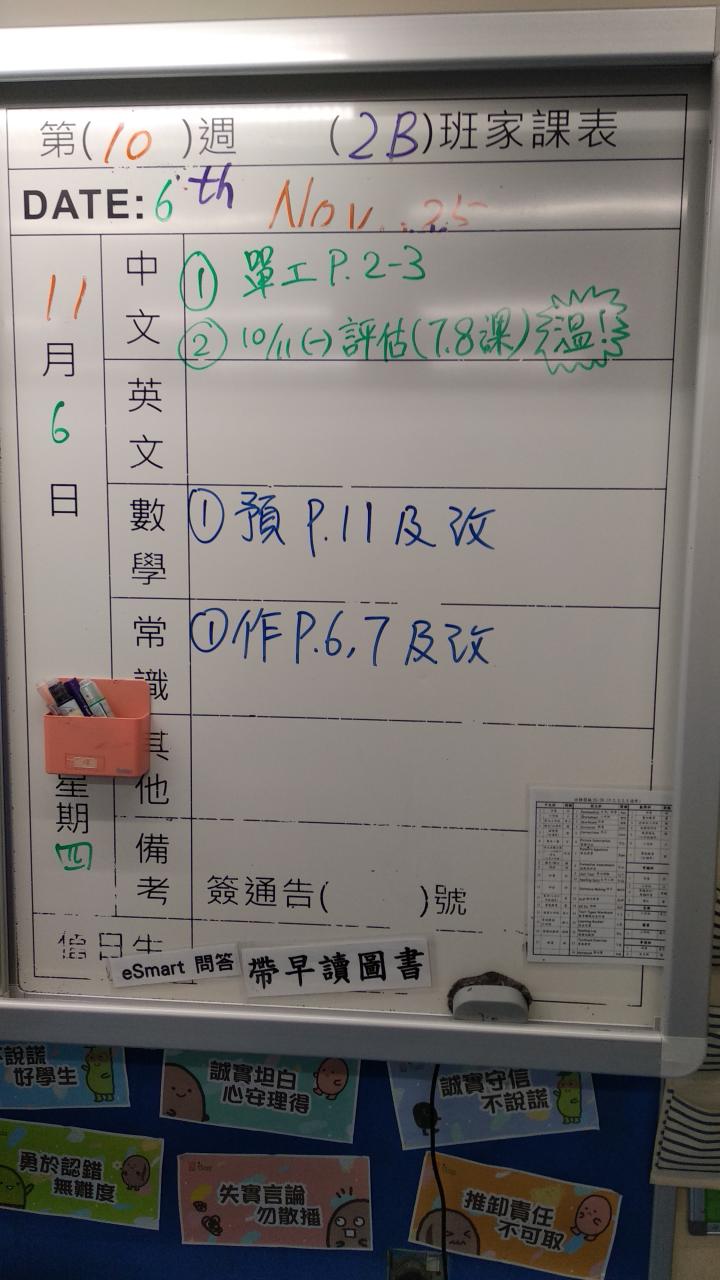 第(10)週 (2B)班家課表
DATE: 6th Nov. 25
11月6日
星期四
中文
① 單工 P.2-3
② 10/11(一)評估(7.8課)溫!
英文
數學
① 預 P.11 及改
常識
① 作 P.6,7 及改
其他
備考
簽通告( )號
值日生
eSmart 問答
帶早讀圖書
不說謊
好學生
誠實坦白
心安理得
誠實守信
不說謊
勇於認錯
無難度
失實言論
勿散播
推卸責任
不可取